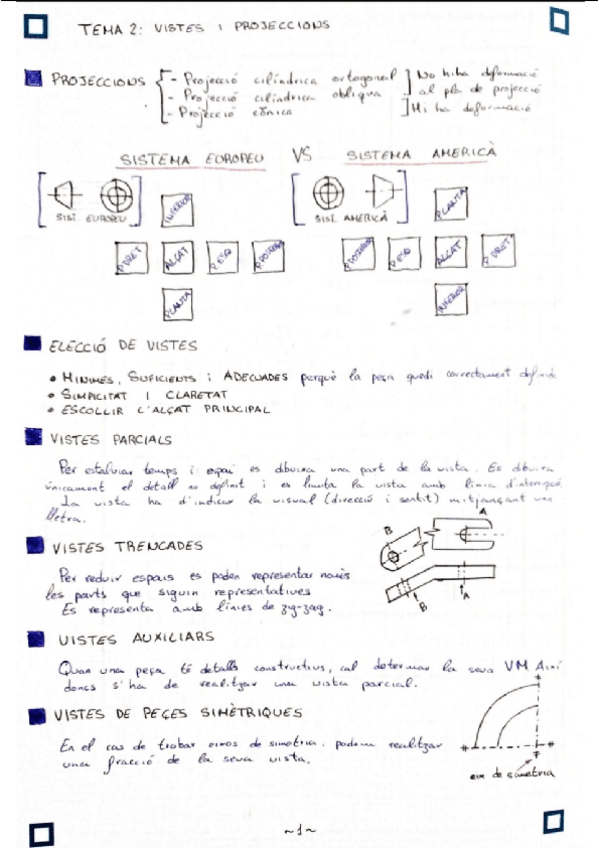 TEMA 2: VISTES I PROJECCIONS
PROJECCIONS
- Projecció cilíndrica ortogonal
- Projecció cilíndrica obliqua
- Projecció cònica
No hi ha deformació
al pla de projecció
Hi ha deformació
SISTEMA EUROPEU VS SISTEMA AMERICÀ
SIST. EUROPEU
INFERIOR
P.DRET
ALÇAT
P.ESQ
P.POSTERIOR
PLANTA
SIST. AMERICÀ
PLANTA
P.POSTERIOR
P.ESQ
ALÇAT
P.DRET
INFERIOR
ELECCIÓ DE VISTES
• MÍNIMES, SUFICIENTS i ADECUADES perquè la peça quedi correctament definida
• SIMPLICITAT I CLARETAT
• ESCOLLIR L'ALÇAT PRINCIPAL
VISTES PARCIALS
Per estalviar temps i espai es dibuixa una part de la vista. Es dibuixa
únicament el detall no definit i es limita la vista amb línia d'interrupció
La vista ha d'indicar la visual (direcció i sentit) mitjançant una
lletra.
A
B
B
A
VISTES TRENCADES
Per reduir espais es poden representar només
les parts que siguin representatives
Es representa amb línies de zig-zag.
VISTES AUXILIARS
Quan una peça té detalls constructius, cal determinar la seva VM Així
doncs s'ha de realitzar una vista parcial.
VISTES DE PECES SIMÈTRIQUES
En el cas de trobar eixos de simetria, podem realitzar
una fracció de la seva vista.
eix de simetria
~1~